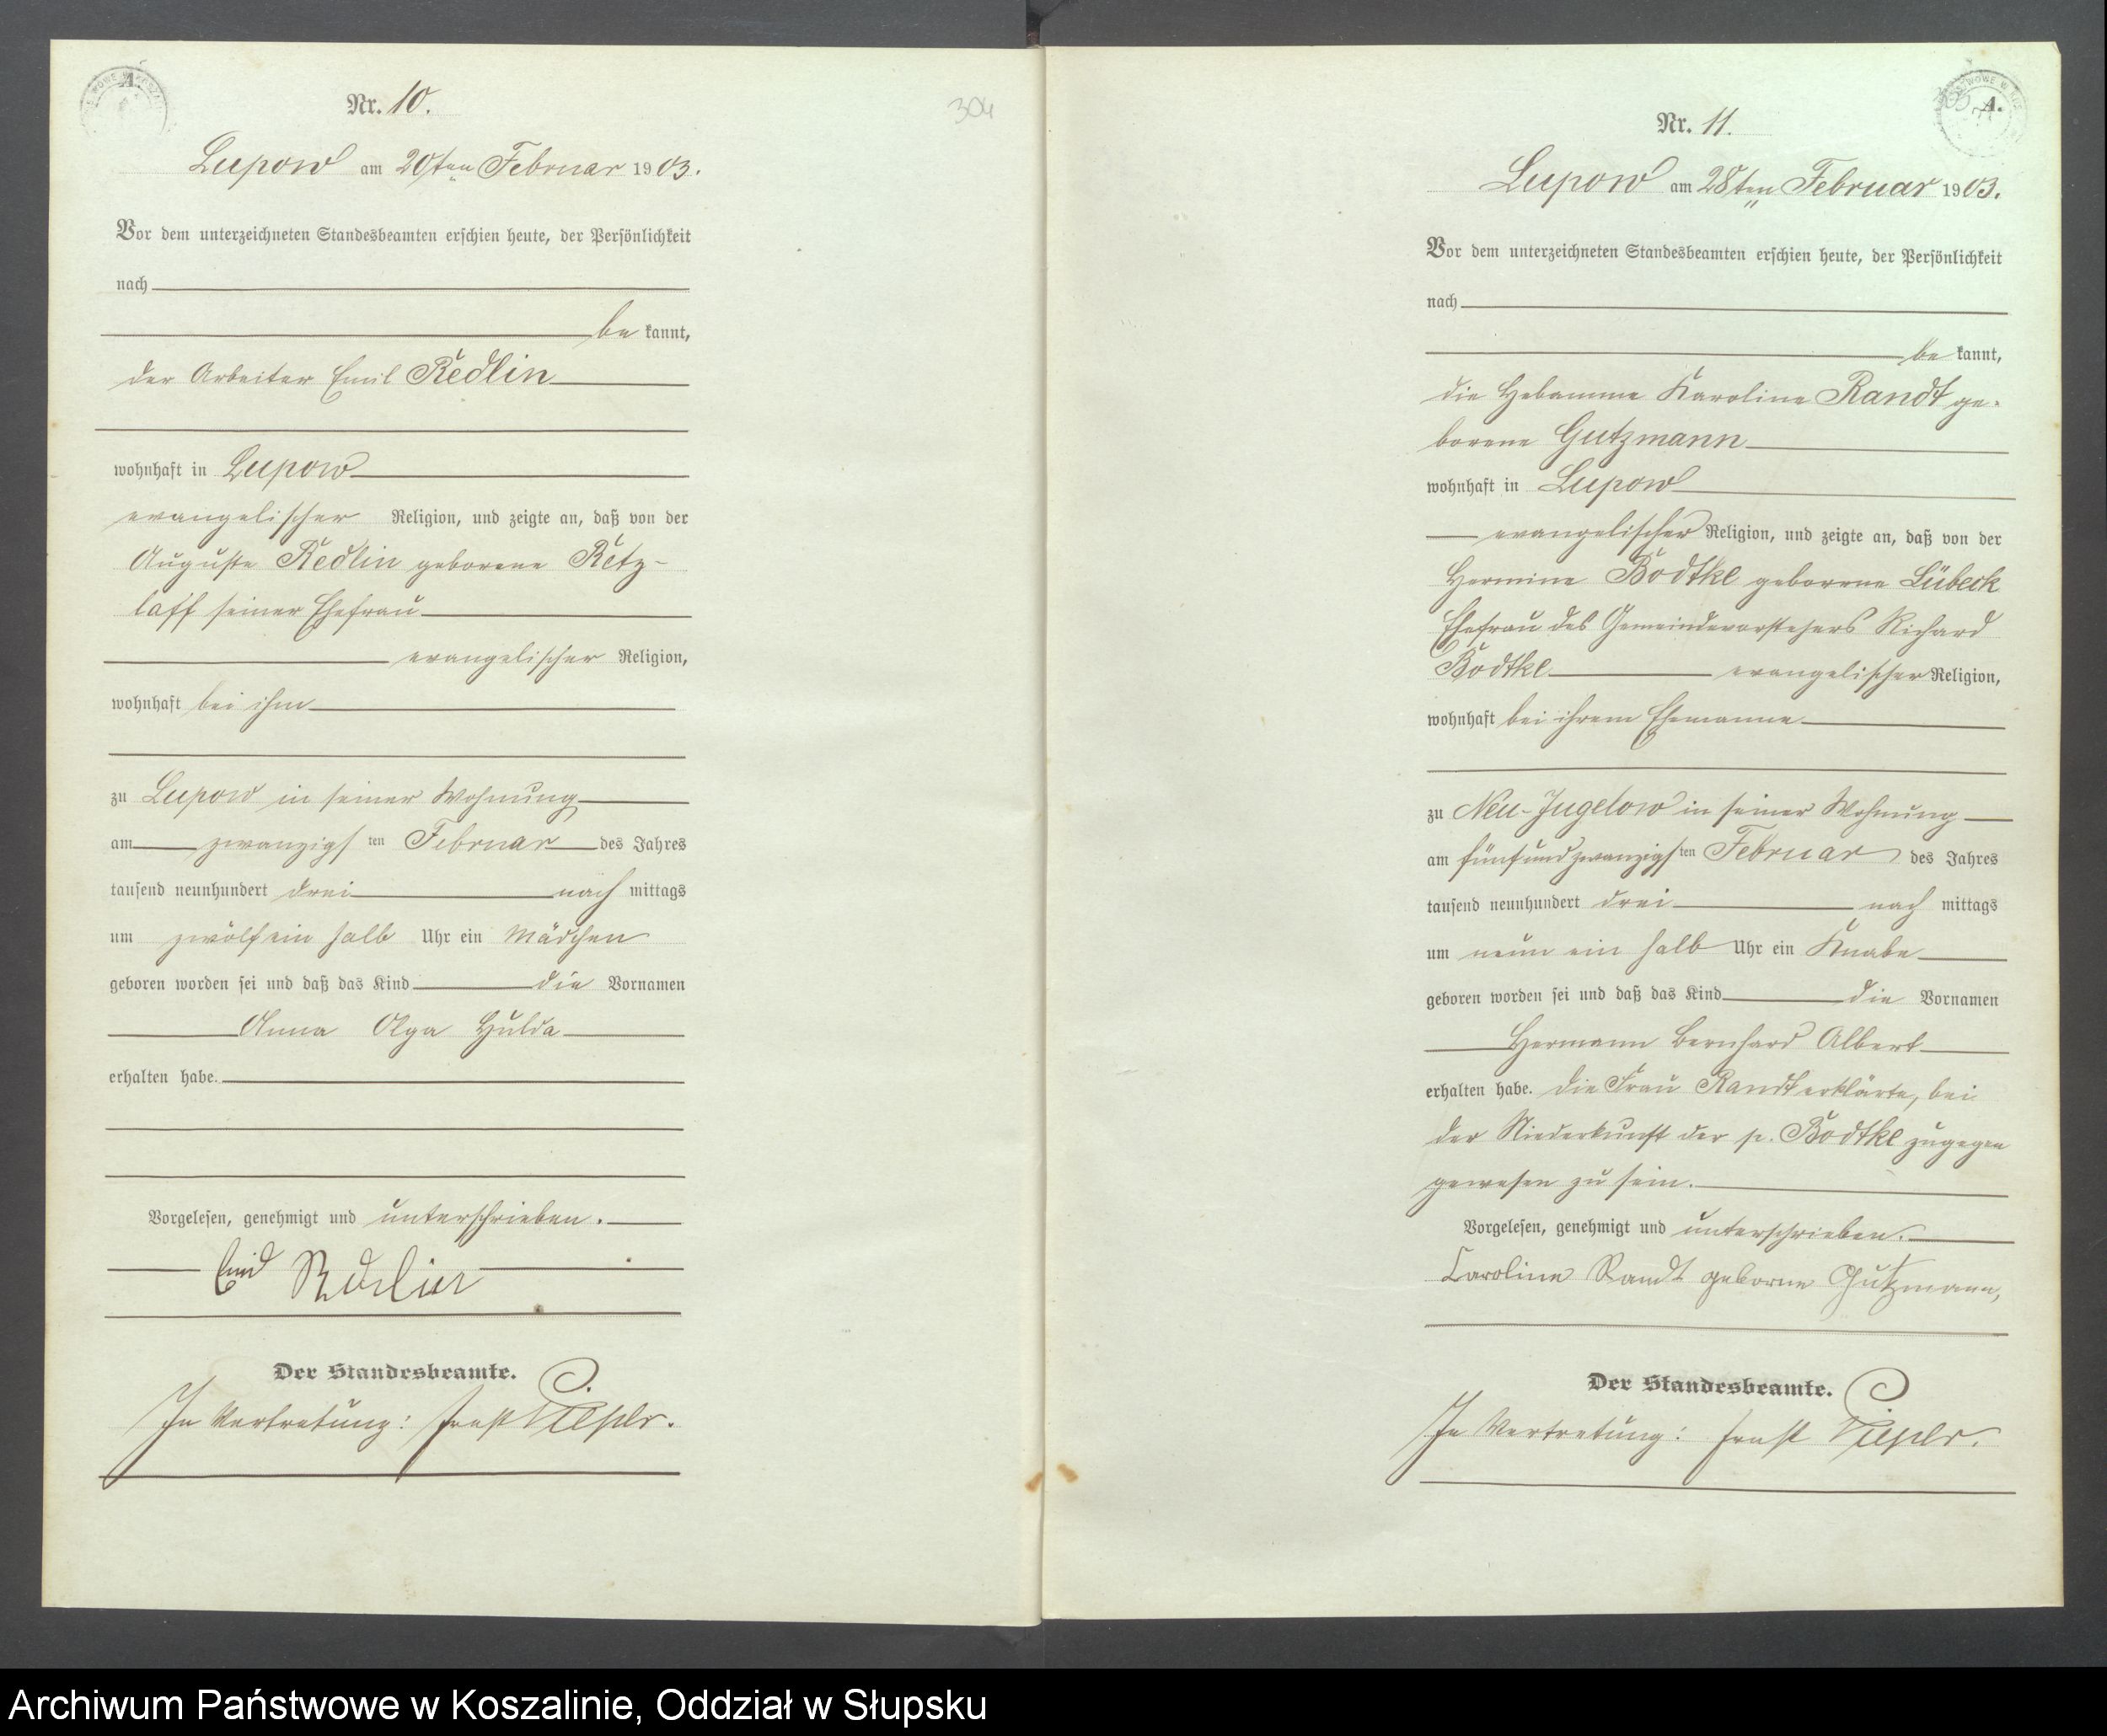 A.
Nr. 10.
304
Lupow am 20ten Februar 1903.
Vor dem unterzeichneten Standesbeamten erschien heute, der Persönlichkeit
nach
be kannt,
der Arbeiter Emil Redlin
wohnhaft in Lupow
evangelischer Religion, und zeigte an, daß von der
Auguste Redlin geborene Retz-
laff seiner Ehefrau
evangelischer Religion,
wohnhaft bei ihm
zu Lupow in seiner Wohnung
am zwanzigsten Februar des Jahres
tausend neunhundert drei nach mittags
um zwölf ein halb Uhr ein Mädchen
geboren worden sei und daß das Kind die Vornamen
Anna Olga Hulda
erhalten habe.
Vorgelesen, genehmigt und unterschrieben.
Emil Redlin
Der Standesbeamte.
In Vertretung: Ernst
A.
Nr. 11.
Lupow am 28ten Februar 1903.
Vor dem unterzeichneten Standesbeamten erschien heute, der Persönlichkeit
nach
be kannt,
die Hebamme Karoline Randt ge-
borene Gutzmann
wohnhaft in Lupow
evangelischer Religion, und zeigte an, daß von der
Hermine Bodtke geborene Lübeck
Ehefrau des Gemeindevorstehers Richard
Bodtke evangelischer Religion,
wohnhaft bei ihrem Ehemanne
zu Neu-Jugelow in seiner Wohnung
am fünfundzwanzigsten Februar des Jahres
tausend neunhundert drei nach mittags
um neun ein halb Uhr ein Knabe
geboren worden sei und daß das Kind die Vornamen
Hermann Bernhard Albert
erhalten habe. Die Frau Randt erklärte, bei
der Niederkunft der p. Bodtke zugegen
gewesen zu sein.
Vorgelesen, genehmigt und unterschrieben.
Caroline Randt geborne Gutzmann,
Der Standesbeamte.
In Vertretung: Ernst
Archiwum Państwowe w Koszalinie, Oddział w Słupsku